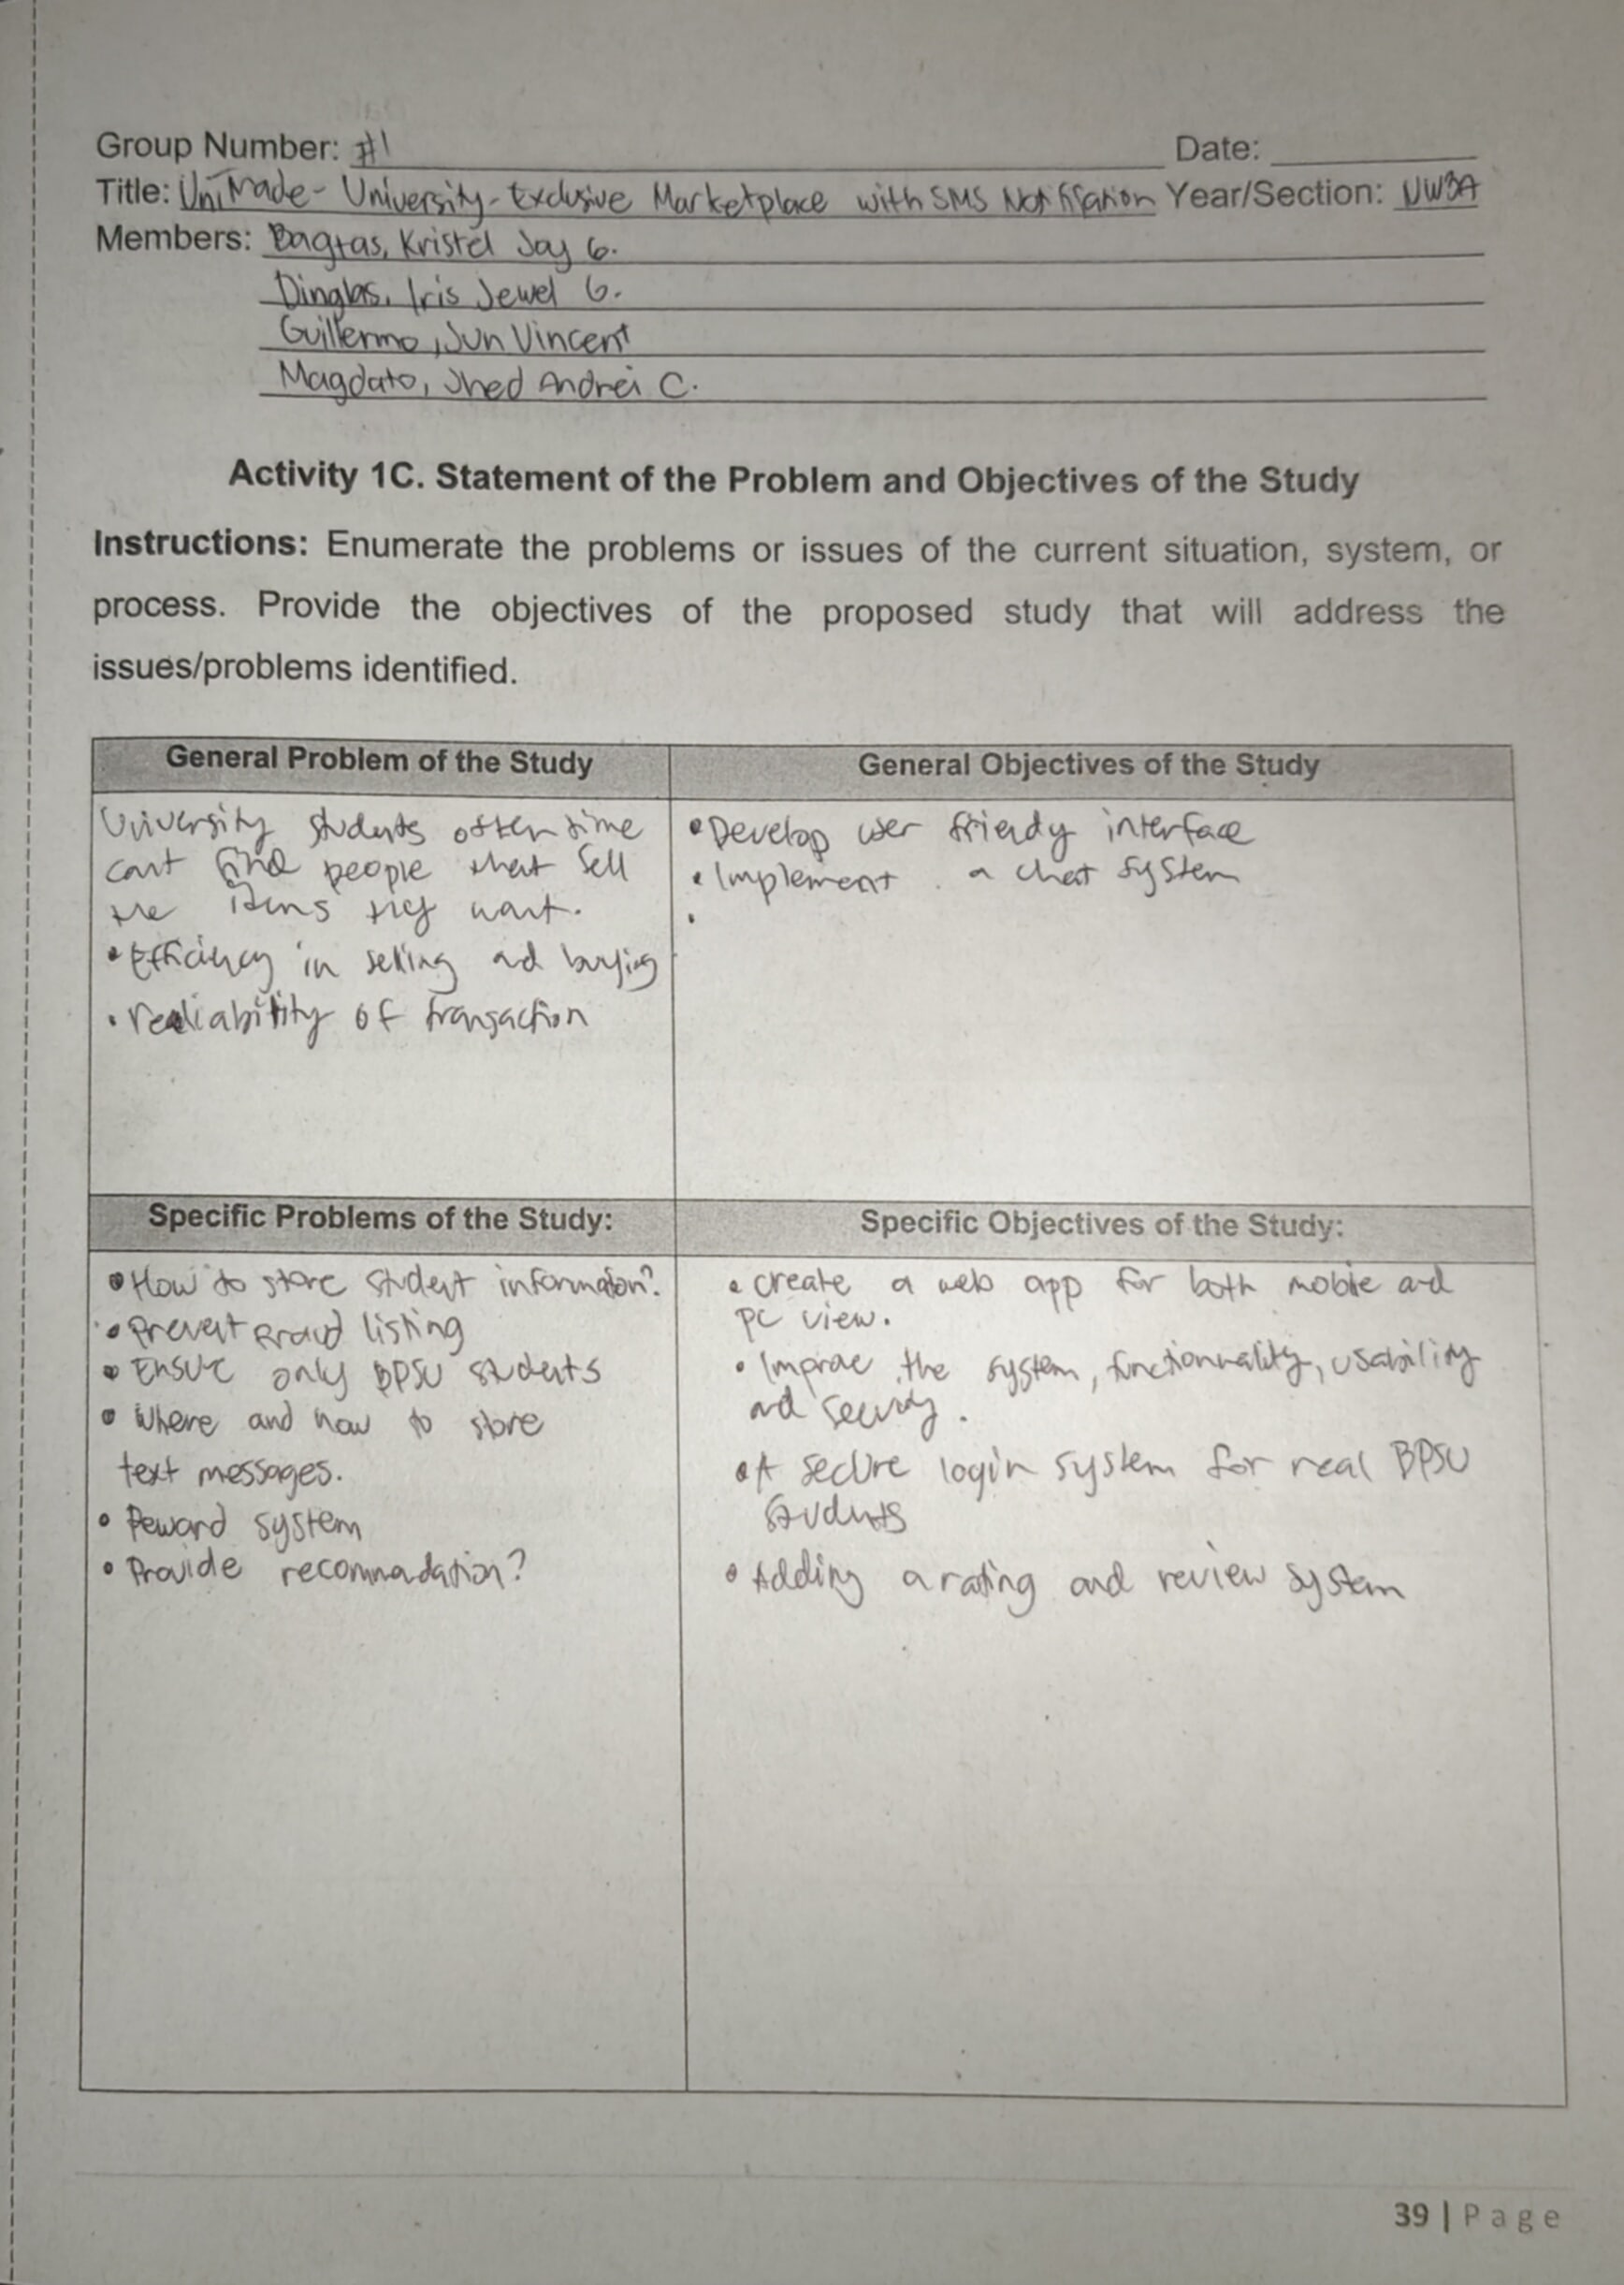 Group Number: #1 Date:
Title: UniTrade - University-Exclusive Marketplace with SMS Notification Year/Section: NW3A
Members: Bagtas, Kristel Joy G.
Dinglas, Iris Jewel G.
Guillermo, Jun Vincent
Magdato, Jhed Andrei C.
Activity 1C. Statement of the Problem and Objectives of the Study
Instructions: Enumerate the problems or issues of the current situation, system, or
process. Provide the objectives of the proposed study that will address the
issues/problems identified.
General Problem of the Study
University students often time
cant find people that sell
the items they want.
• Efficiency in selling and buying
• realiability of transaction
General Objectives of the Study
• Develop user friendy interface
• Implement a chat system
•
Specific Problems of the Study:
• How to store student information?
• Prevent Fraud listing
• Ensure only BPSU students
• Where and how to store
text messages.
• Reward system
• Provide recommadation?
Specific Objectives of the Study:
• create a web app for both mobile and
PC view.
• Improve the system, functionnality, usability
and security.
• A secure login system for real BPSU
students
• Adding a rating and review system
39 | Page